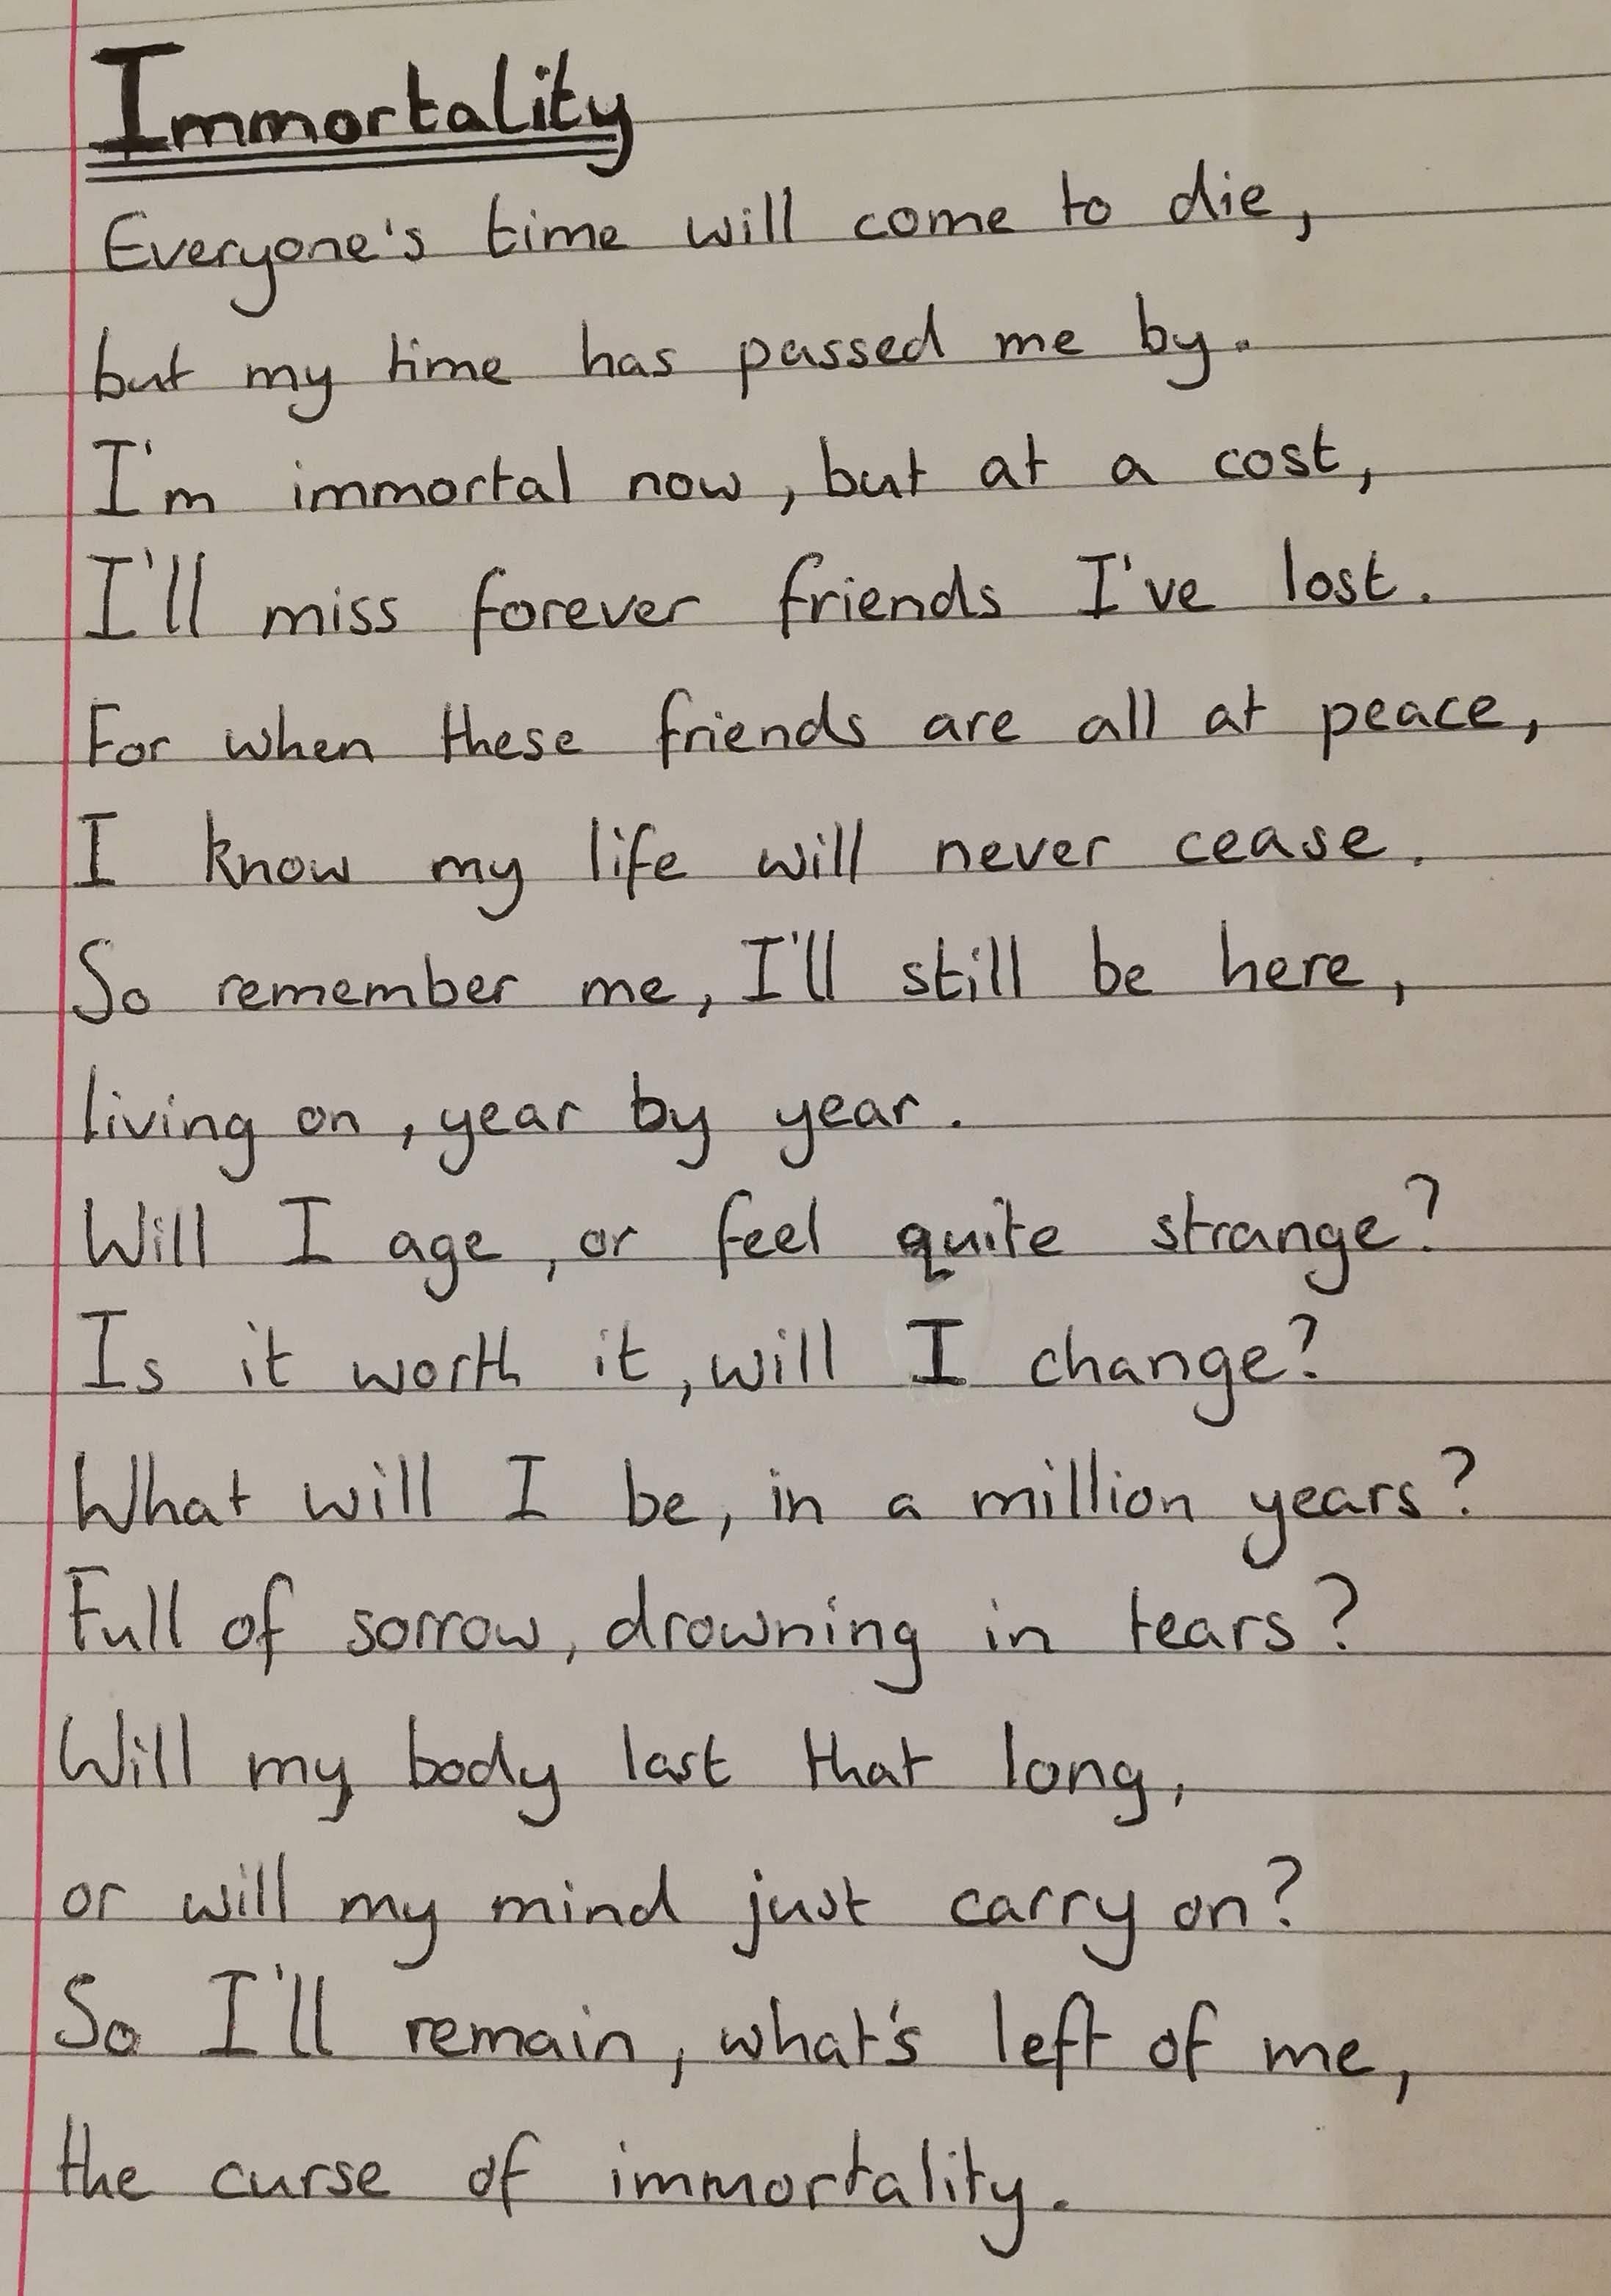 Immortality
Everyone's time will come to die,
but my time has passed me by.
I'm immortal now, but at a cost,
I'll miss forever friends I've lost.
For when these friends are all at peace,
I know my life will never cease.
So remember me, I'll still be here,
living on, year by year.
Will I age, or feel quite strange?
Is it worth it, will I change?
What will I be, in a million years?
Full of sorrow, drowning in tears?
Will my body last that long,
or will my mind just carry on?
So I'll remain, what's left of me,
the curse of immortality.